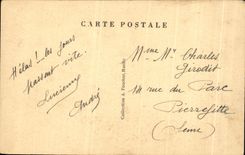 CARTE POSTALE
Hélas! les jours
passent vite.
Lucienne
André
Mme Mr Charles
Girodit
14 rue du Parc
Pierrefitte
(Seine)
Collection A. Fourier,